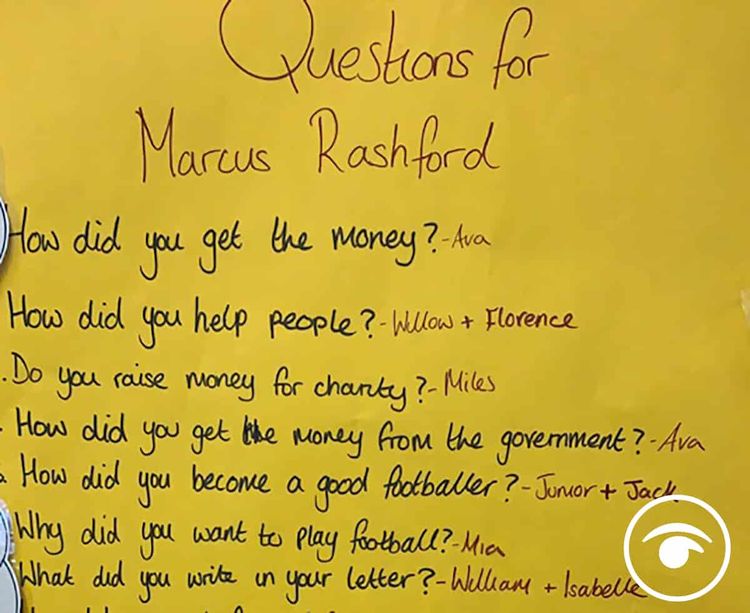 Questions for
Marcus Rashford
How did you get the money?-Ava
How did you help people?-Willow + Florence
.Do you raise money for charity?-Miles
How did you get the money from the government?-Ava
How did you become a good footballer?-Junior + Jack
Why did you want to play football?-Mia
What did you write in your letter?-William + Isabelle